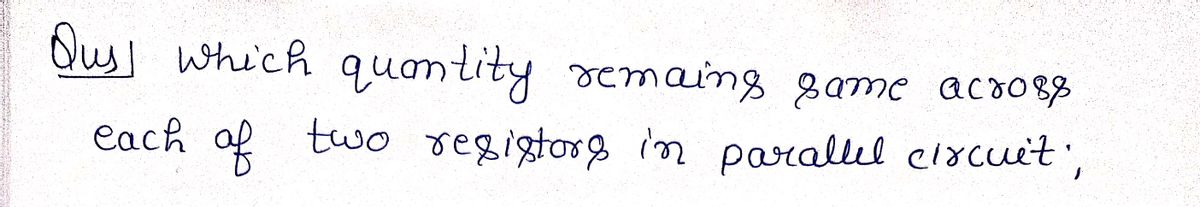 Qus] Which quantity remains same across
each of two resistors in parallel circuit;